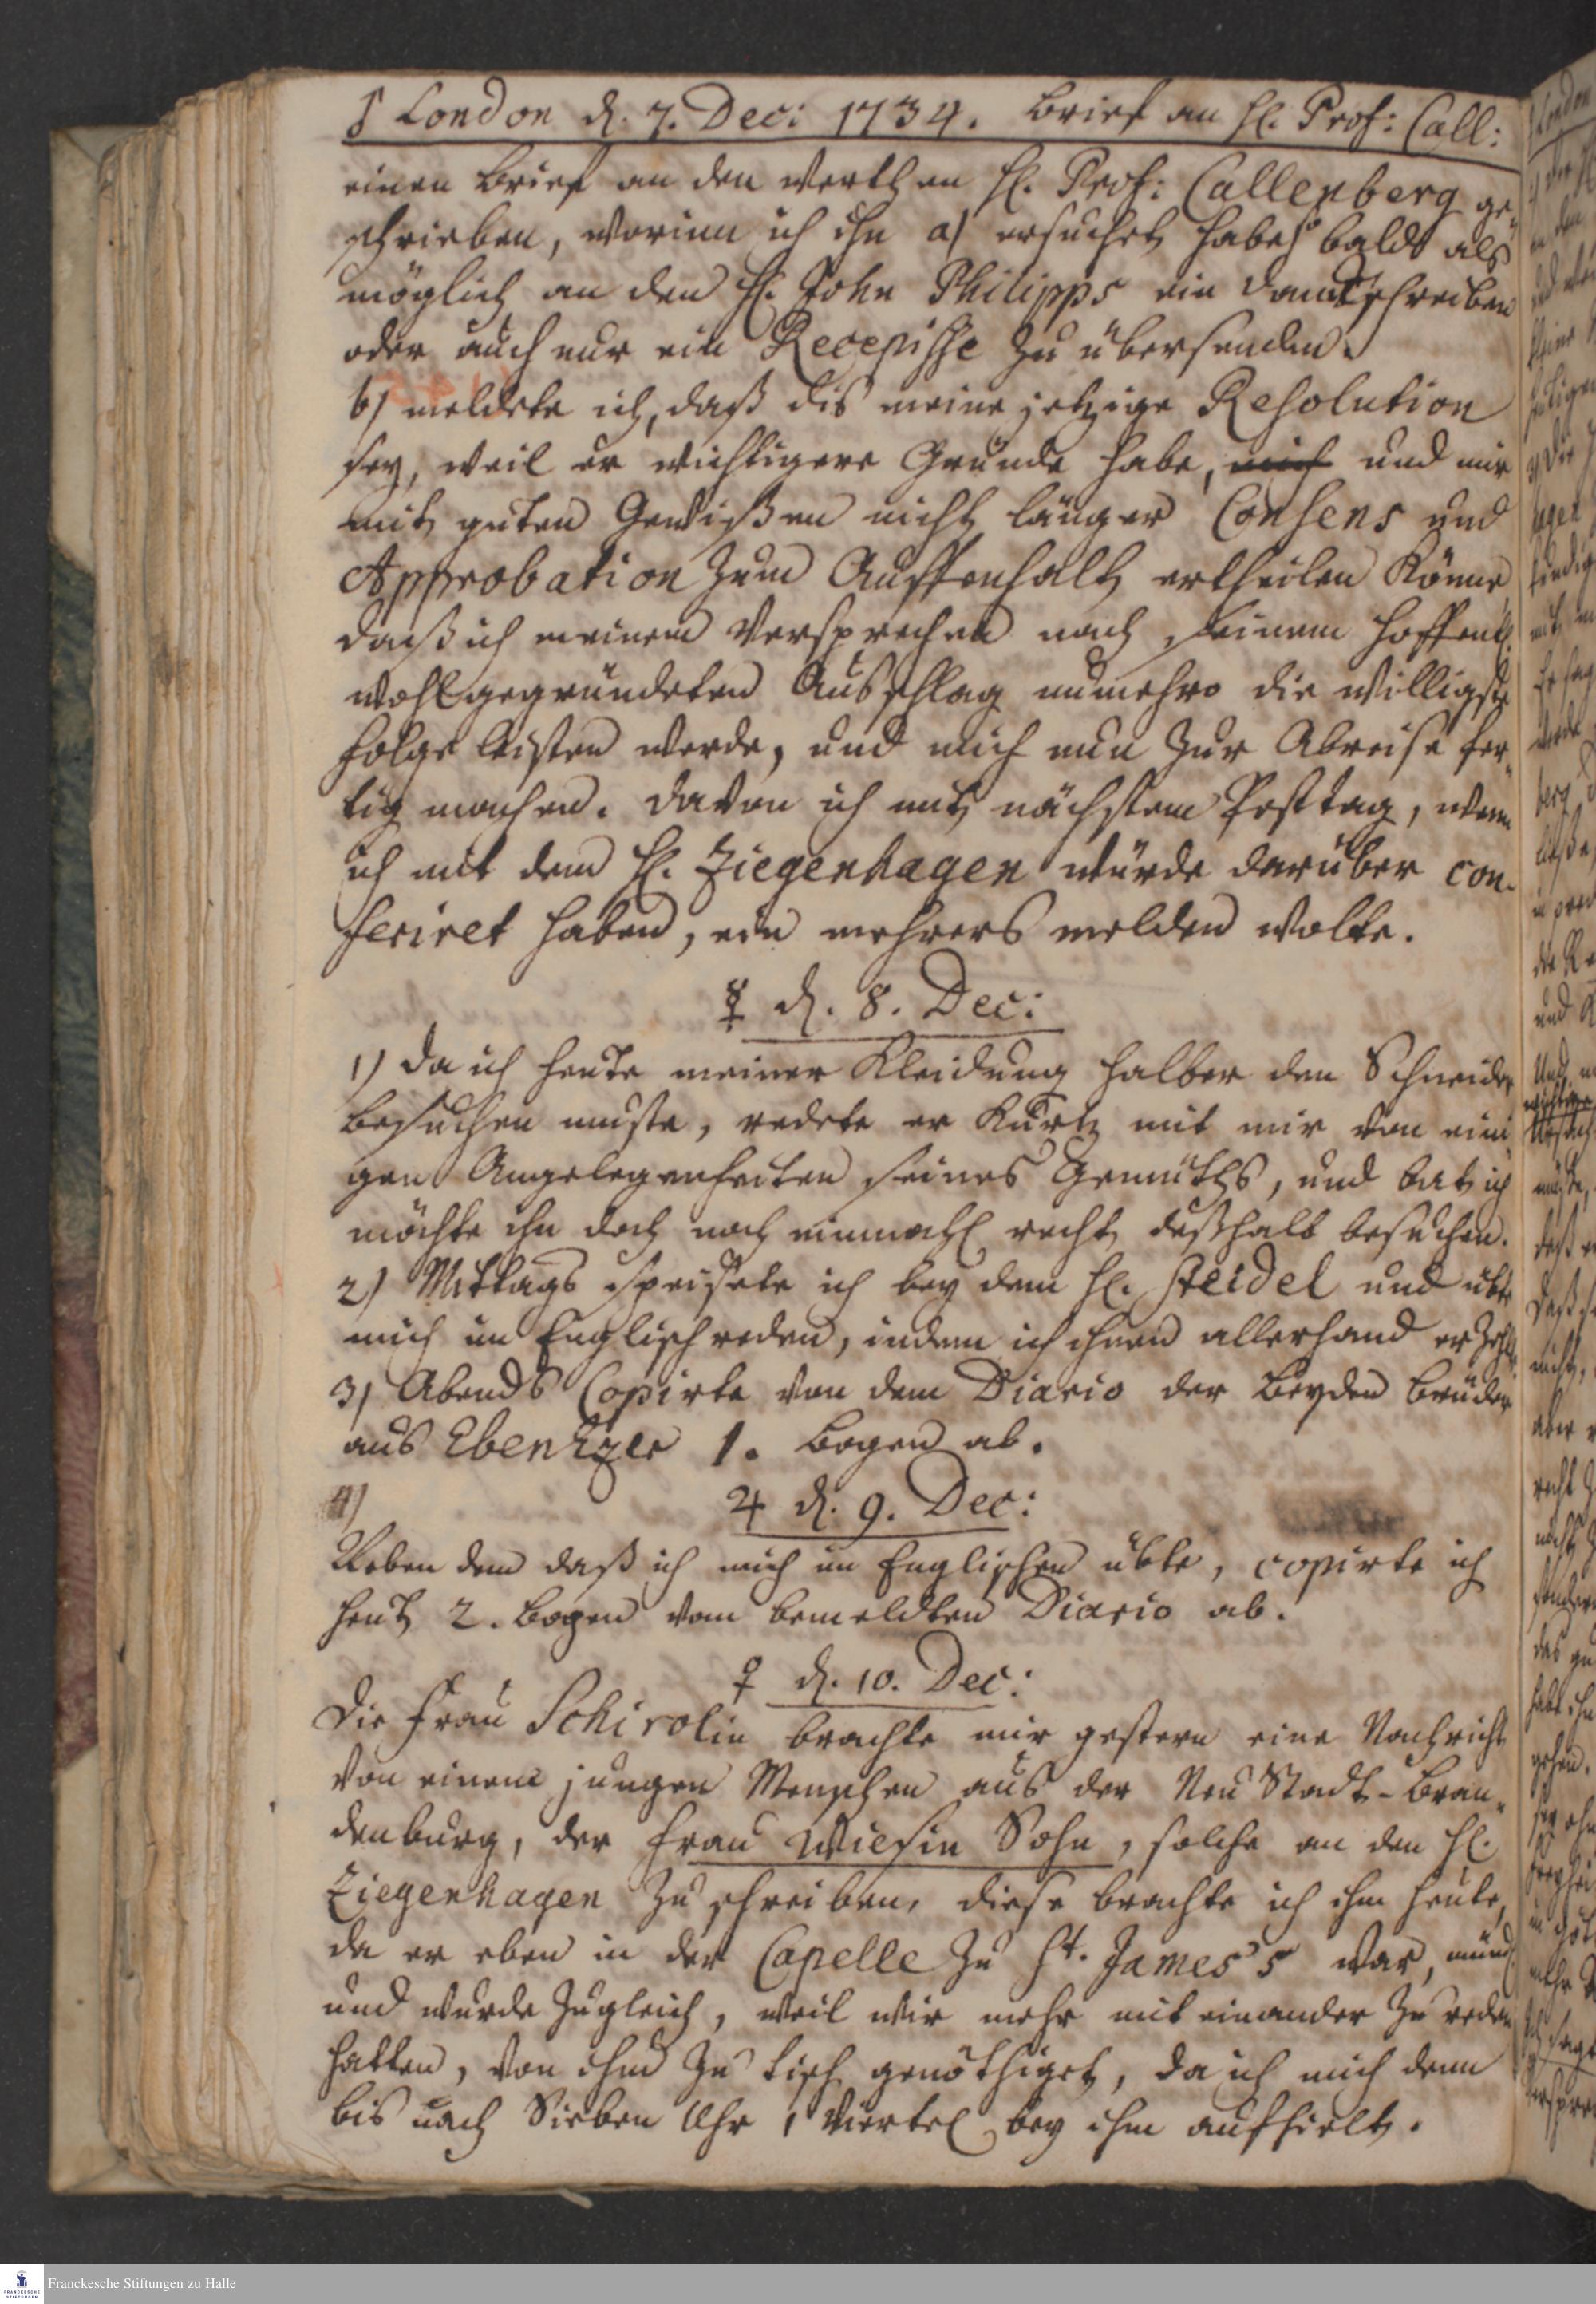 London d. 7. Dec: 1734. Brief an H. Prof: Call:
einen Brief an den werthen H. Prof: Callenberg ge-
schrieben, worinn ich ihn a) ersuchet habe so bald als
möglich an den H. John Philipps ein Danckschreiben
oder auch nur ein Recepisse zu übersenden.
b) meldete ich, daß dis meine jetzige Resolution
sey, weil er wichtigere Gründe habe, und mir
mit guten Gewißen nicht länger Consens und
Approbation zum Auffenhalt ertheilen könne
daß ich meinem Versprechen nach seinem hoffentl.
wohlgegründeten Ausschlag numehro die willigste
folge leisten werde, und mich nun zur Abreise fer-
tig machen. Davon ich mit nächstem Posttag, wenn
ich mit dem H. Ziegenhagen würde darüber con-
feriret haben, ein mehrers melden wolte.
☿ d. 8. Dec:
1) Da ich heute meiner Kleidung halber den Schneider
besuchen muste, redete er kurtz mit mir von eini
gen Angelegenheiten seines Gemüths, und bat ich
möchte ihn doch noch einmahl recht deßhalb besuchen.
2) Mittags speisete ich bey dem H. Steidel und übte
mich im Englisch reden, indem ich ihnen allerhand erzehlte
3) Abends Copirte von dem Diario der beyden Brüder
aus Ebenezer 1. Bogen ab.
4)
♃ d. 9. Dec:
Neben dem daß ich mich im Englischen übte, copirte ich
heut 2. Bogen vom bemeldten Diario ab.
♀ d. 10. Dec:
Die Frau Schirolin brachte mir gestern eine Nachricht
von einem jungen Menschen aus der Neu Stadt-Bran-
denburg, der Frau Wiesin Sohn, solche an den H.
Ziegenhagen zu schreiben, diese brachte ich ihm heute,
da er eben in der Capelle zu St. James's war, mündl.
und wurde zugleich, weil wir mehr mit einander zu reden
hatten, von ihm zu tisch genöthiget, da ich mich denn
bis nach Sieben Uhr 1 Viertel bey ihm aufhielt.
Franckesche Stiftungen zu Halle